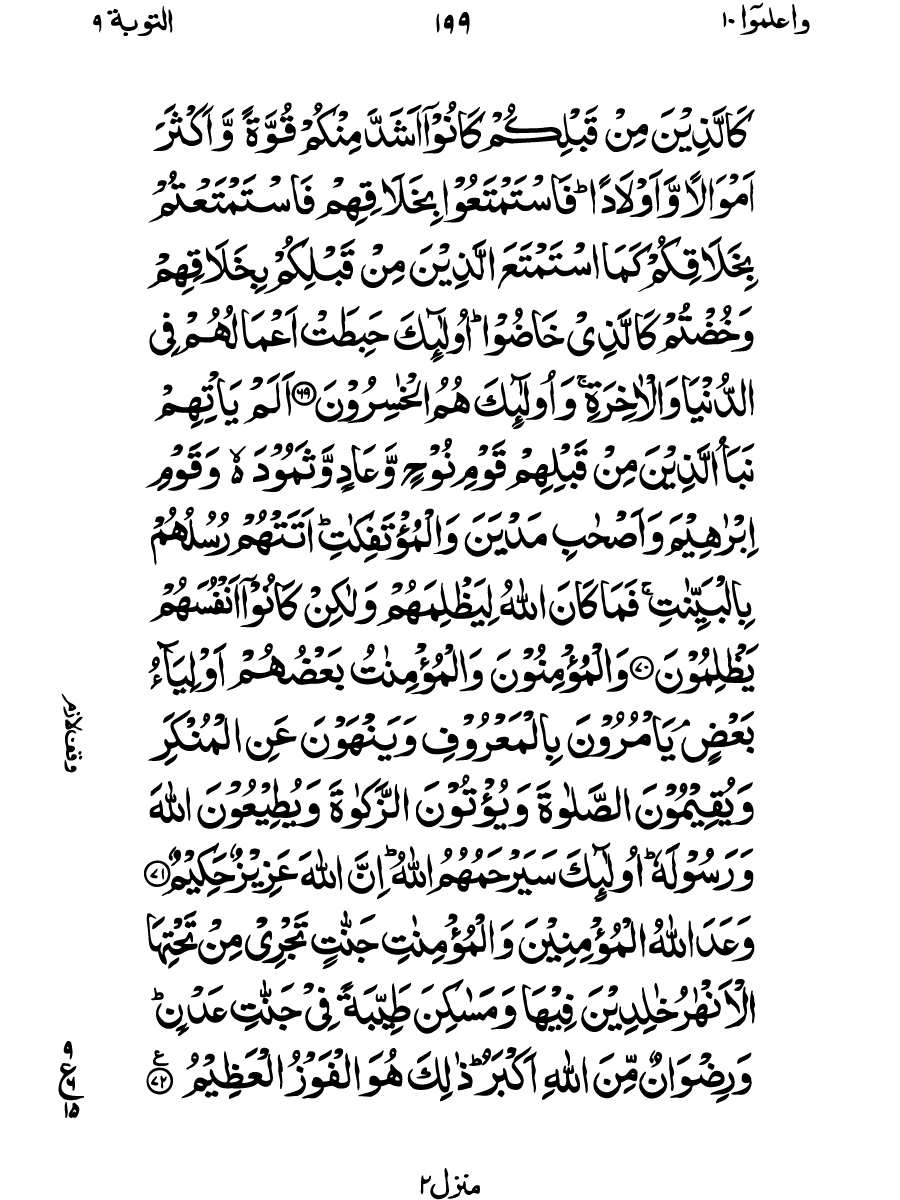 واعلموا ١٠
١٩٩
التوبة ٩
كَالَّذِيْنَ مِنْ قَبْلِكُمْ كَانُوْۤا اَشَدَّ مِنْكُمْ قُوَّةً وَّ اَكْثَرَ
اَمْوَالًا وَّ اَوْلَادًا ؕ فَاسْتَمْتَعُوْا بِخَلَاقِهِمْ فَاسْتَمْتَعْتُمْ
بِخَلَاقِكُمْ كَمَا اسْتَمْتَعَ الَّذِيْنَ مِنْ قَبْلِكُمْ بِخَلَاقِهِمْ
وَ خُضْتُمْ كَالَّذِيْ خَاضُوْا ؕ اُولٰٓىِٕكَ حَبِطَتْ اَعْمَالُهُمْ فِى
الدُّنْيَا وَ الْاٰخِرَةِ ۚ وَ اُولٰٓىِٕكَ هُمُ الْخٰسِرُوْنَ ﴿٦٩﴾ اَلَمْ يَاْتِهِمْ
نَبَاُ الَّذِيْنَ مِنْ قَبْلِهِمْ قَوْمِ نُوْحٍ وَّ عَادٍ وَّ ثَمُوْدَ ۙ۬ وَ قَوْمِ
اِبْرٰهِيْمَ وَ اَصْحٰبِ مَدْيَنَ وَ الْمُؤْتَفِكٰتِ ؕ اَتَتْهُمْ رُسُلُهُمْ
بِالْبَيِّنٰتِ ۚ فَمَا كَانَ اللّٰهُ لِيَظْلِمَهُمْ وَ لٰكِنْ كَانُوْۤا اَنْفُسَهُمْ
يَظْلِمُوْنَ ﴿٧٠﴾ وَ الْمُؤْمِنُوْنَ وَ الْمُؤْمِنٰتُ بَعْضُهُمْ اَوْلِيَآءُ
بَعْضٍ ۘ يَاْمُرُوْنَ بِالْمَعْرُوْفِ وَ يَنْهَوْنَ عَنِ الْمُنْكَرِ
وَ يُقِيْمُوْنَ الصَّلٰوةَ وَ يُؤْتُوْنَ الزَّكٰوةَ وَ يُطِيْعُوْنَ اللّٰهَ
وَ رَسُوْلَهٗ ؕ اُولٰٓىِٕكَ سَيَرْحَمُهُمُ اللّٰهُ ؕ اِنَّ اللّٰهَ عَزِيْزٌ حَكِيْمٌ ﴿٧١﴾
وَعَدَ اللّٰهُ الْمُؤْمِنِيْنَ وَ الْمُؤْمِنٰتِ جَنّٰتٍ تَجْرِيْ مِنْ تَحْتِهَا
الْاَنْهٰرُ خٰلِدِيْنَ فِيْهَا وَ مَسٰكِنَ طَيِّبَةً فِيْ جَنّٰتِ عَدْنٍ ؕ
وَ رِضْوَانٌ مِّنَ اللّٰهِ اَكْبَرُ ؕ ذٰلِكَ هُوَ الْفَوْزُ الْعَظِيْمُ ﴿٧٢﴾ ع
وقف لازم
٩
ع ٦
١٥
منزل ٢